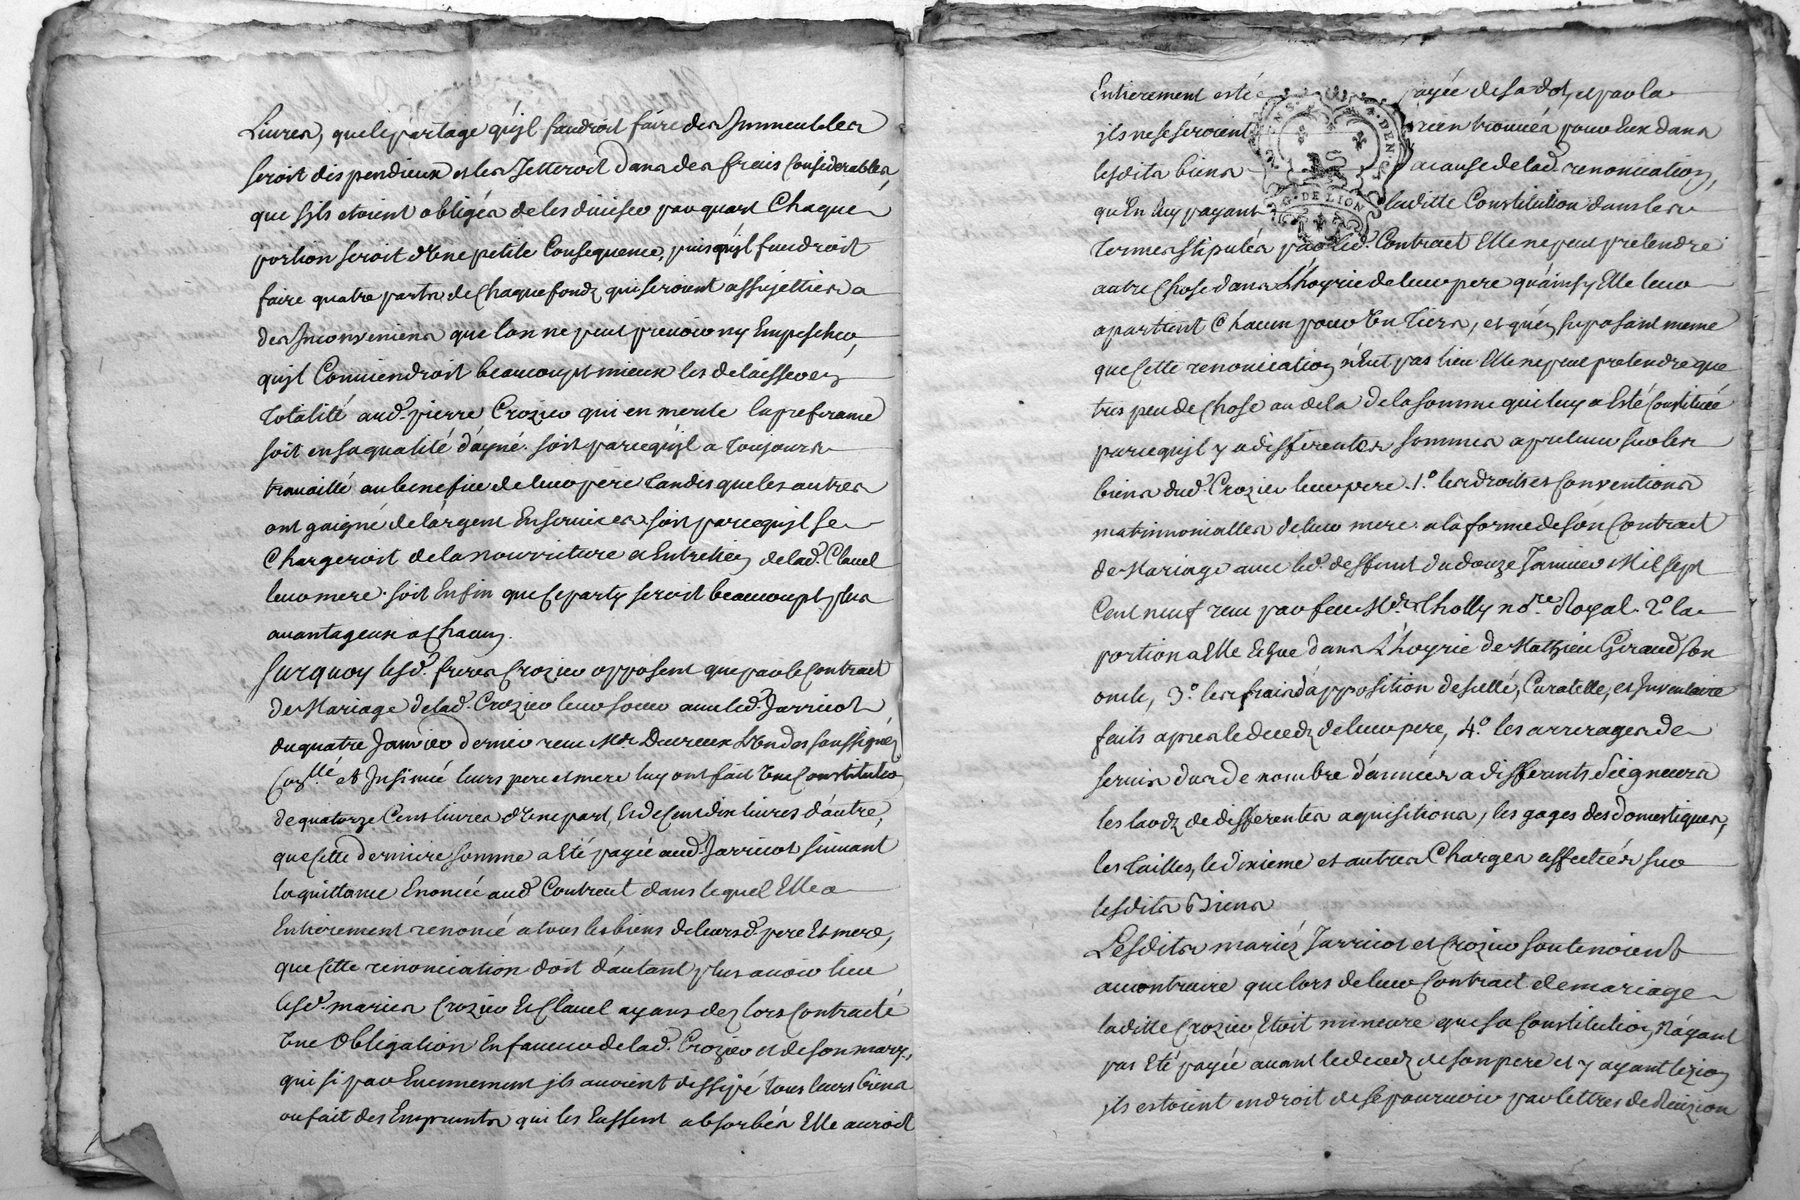 Livres, que le partage qu'jl faudroit faire des Jmmeubles
seroit dispendieux et les Jetteroit dans des frais Considerables,
que sjls etoient obligés de les diviser par quart Chaque
portion seroit d'Une petite Consequence, puis qu'jl faudroit
faire quatre parts de Chaque fondz qui seroient assujetties a
des Jnconveniens que lon ne peut prevoir ny Empescher,
qu'jl Conviendroit beaucoupt mieux les delaisser en
Totalité aud. pierre Crozier qui en merite la preferance
soit en sa qualité d'ayné. soit parcequ'jl a Toujours
travaillé au benefice de leur père tandis que les autres
ont gaigné de l'argent En services. soit parcequ'jl se
Chargeroit de la nourriture et Entretien de lad. Clavel
leur mere. soit Enfin que Ce party seroit beaucoupt plus
avantageux a Chacun.
Surquoy lesd. freres Crozier opposent que par le Contract
de Mariage de lad. Crozier leur soeur avec led. Jarricot
du quatre Janvier dernier receu Me. Ducreux L'Un des soussignés
Con.llé et Jnsinué leurs pere et mere luy ont fait Une Constitutio
de quatorze Cens livres d'Une part, Et de Cent dix livres d'autre,
que Cette derniere somme a Eté payée aud. Jarricot suivant
la quittance Enoncée aud. Contract dans lequel Elle a
Entierement renoncé a tous les biens de leursd. pere Et mere,
que Cette renonciation doit d'autant plus avoir lieu
lesd. mariés Crozier Et Clavel ayans dez lors Contracté
Une Obligation En faveur de lad. Crozier et de son mary,
qui si par Evennement jls avoient dissipé tous leurs biens
ou fait des Emprunts qui les Eussent absorbés Elle auroit
Entierement esté payée de sa dot, et par la
jls ne se seroient rien trouvés pour Eux dans
lesdits biens a cause de lad. renonciation,
qu'En luy payant laditte Constitution dans les
Termes stipulés par led. Contract Elle ne peut pretendre
autre Chose dans L'hoyrie de leur pere qu'ainsy Elle leur
apartient Chacun pour Un Tiers, et qu'en suposant meme
que Cette renonciation n'Eut pas lieu Elle ne peut pretendre que
tres peu de Chose au dela de la somme qui luy a Esté Constituée
parcequ'jl y a differentes sommes a prelever sur les
biens dud. Crozier leur pere. 1.° les droits et Conventions
matrimonialles de leur mere. a la forme de son Contract
de Mariage avec led. deffunt du douze Janvier Mil sept
Cent neuf receu par feu Me. Tholly no.re Royal. 2.° la
portion a Elle Echue dans L'hoyrie de Mathieu Giraud son
oncle, 3.° les frais d'apposition de scellé, Curatelle, et Jnventaire
faits apres le decedz de leur pere, 4.° les arrerages de
servis dus de nombre d'années a differants Seigneurs
les laodz de differentes aquisitions, les gages des domestiques,
les Tailles, le dixieme et autres Charges affectées sur
lesdits Biens
Lesdits mariéz Jarricot et Crozier soutenoient
au contraire que lors de leur Contract de mariage
laditte Crozier Etoit mineure que sa Constitution N'ayant
pas Eté payée avant le decedz de son pere et y ayant lezion
jls estoient en droit de se pourvoir par lettres de Recizion
G. DE LION